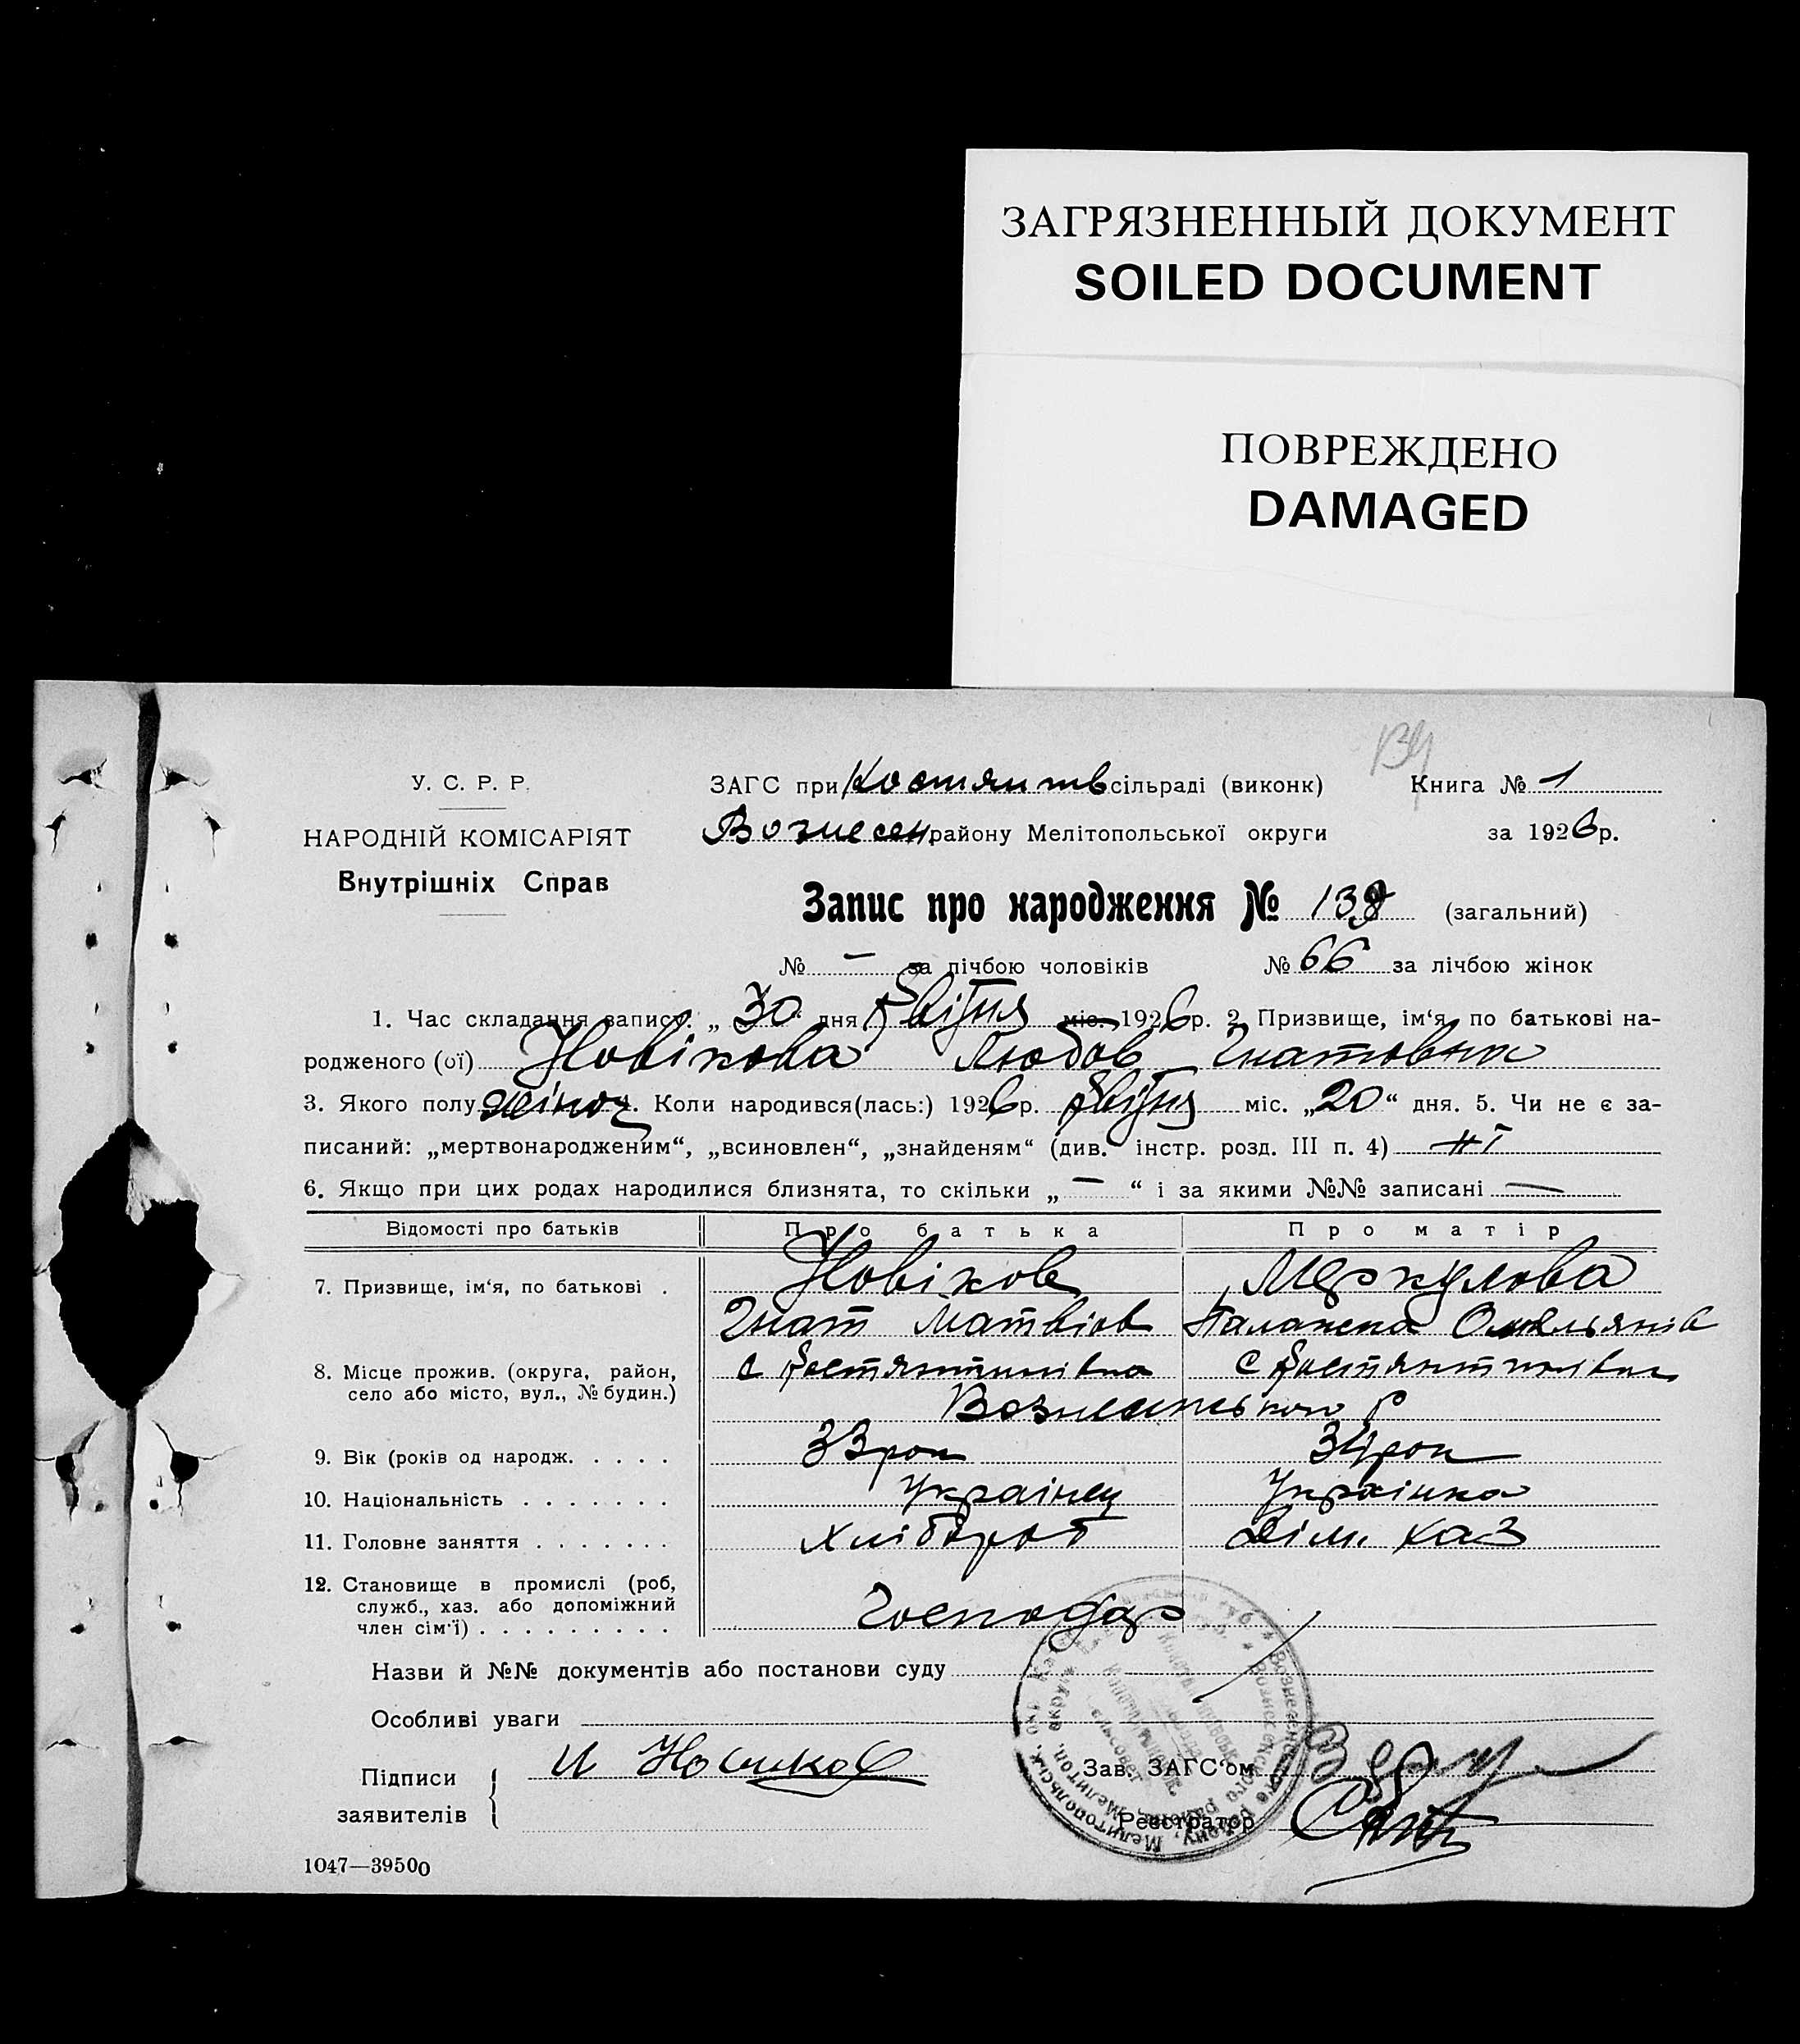 ЗАГРЯЗНЕННЫЙ ДОКУМЕНТ
SOILED DOCUMENT
ПОВРЕЖДЕНО
DAMAGED
У. С. Р. Р. ЗАГС при Костянтв сільраді (виконк) Книга № 1
НАРОДНІЙ КОМІСАРІЯТ Вознесен. району Мелітопольської округи за 1926 р.
Внутрішніх Справ
Запис про народження № 139 (загальний)
№ — за лічбою чоловіків № 66 за лічбою жінок
1. Час складання запису. „ 30 дня квітня міс. 1926 р. 2. Призвище, ім‘я, по батькові на-
родженого (ої) Новікова Любов Гнатовна
3. Якого полу жіноч 4. Коли народився(лась:) 1926 р. квітня міс. „20“ дня. 5. Чи не є за-
писаний: „мертвонародженим“, „всиновлен“, „знайденям“ (див. інстр. розд. III п. 4) ні
6. Якщо при цих родах народилися близнята, то скільки „ — “ і за якими №№ записані —
Відомості про батьків Про батька Про матір
7. Призвище, ім‘я, по батькові . Новіков Меркулова
Гнат Матвіов Палажка Омельянів
8. Місце прожив. (округа, район, с Костянтинівка с Костянтинівка
село або місто, вул., № будин.)
Вознесенського р
9. Вік (років од народж. . . . . 33 рок 34 рок
10. Національність . . . . . . . Українец Українка
11. Головне заняття . . . . . . . Хлібороб Дім. хаз
12. Становище в промислі (роб,
служб., хаз. або допоміжний
член сім‘ї) . . . . . . . . . Господар
Назви й №№ документів або постанови суду
Особливі уваги
Підписи И Новиков Зав. ЗАГС‘ом
заявителів Реєстратор
1047—39500